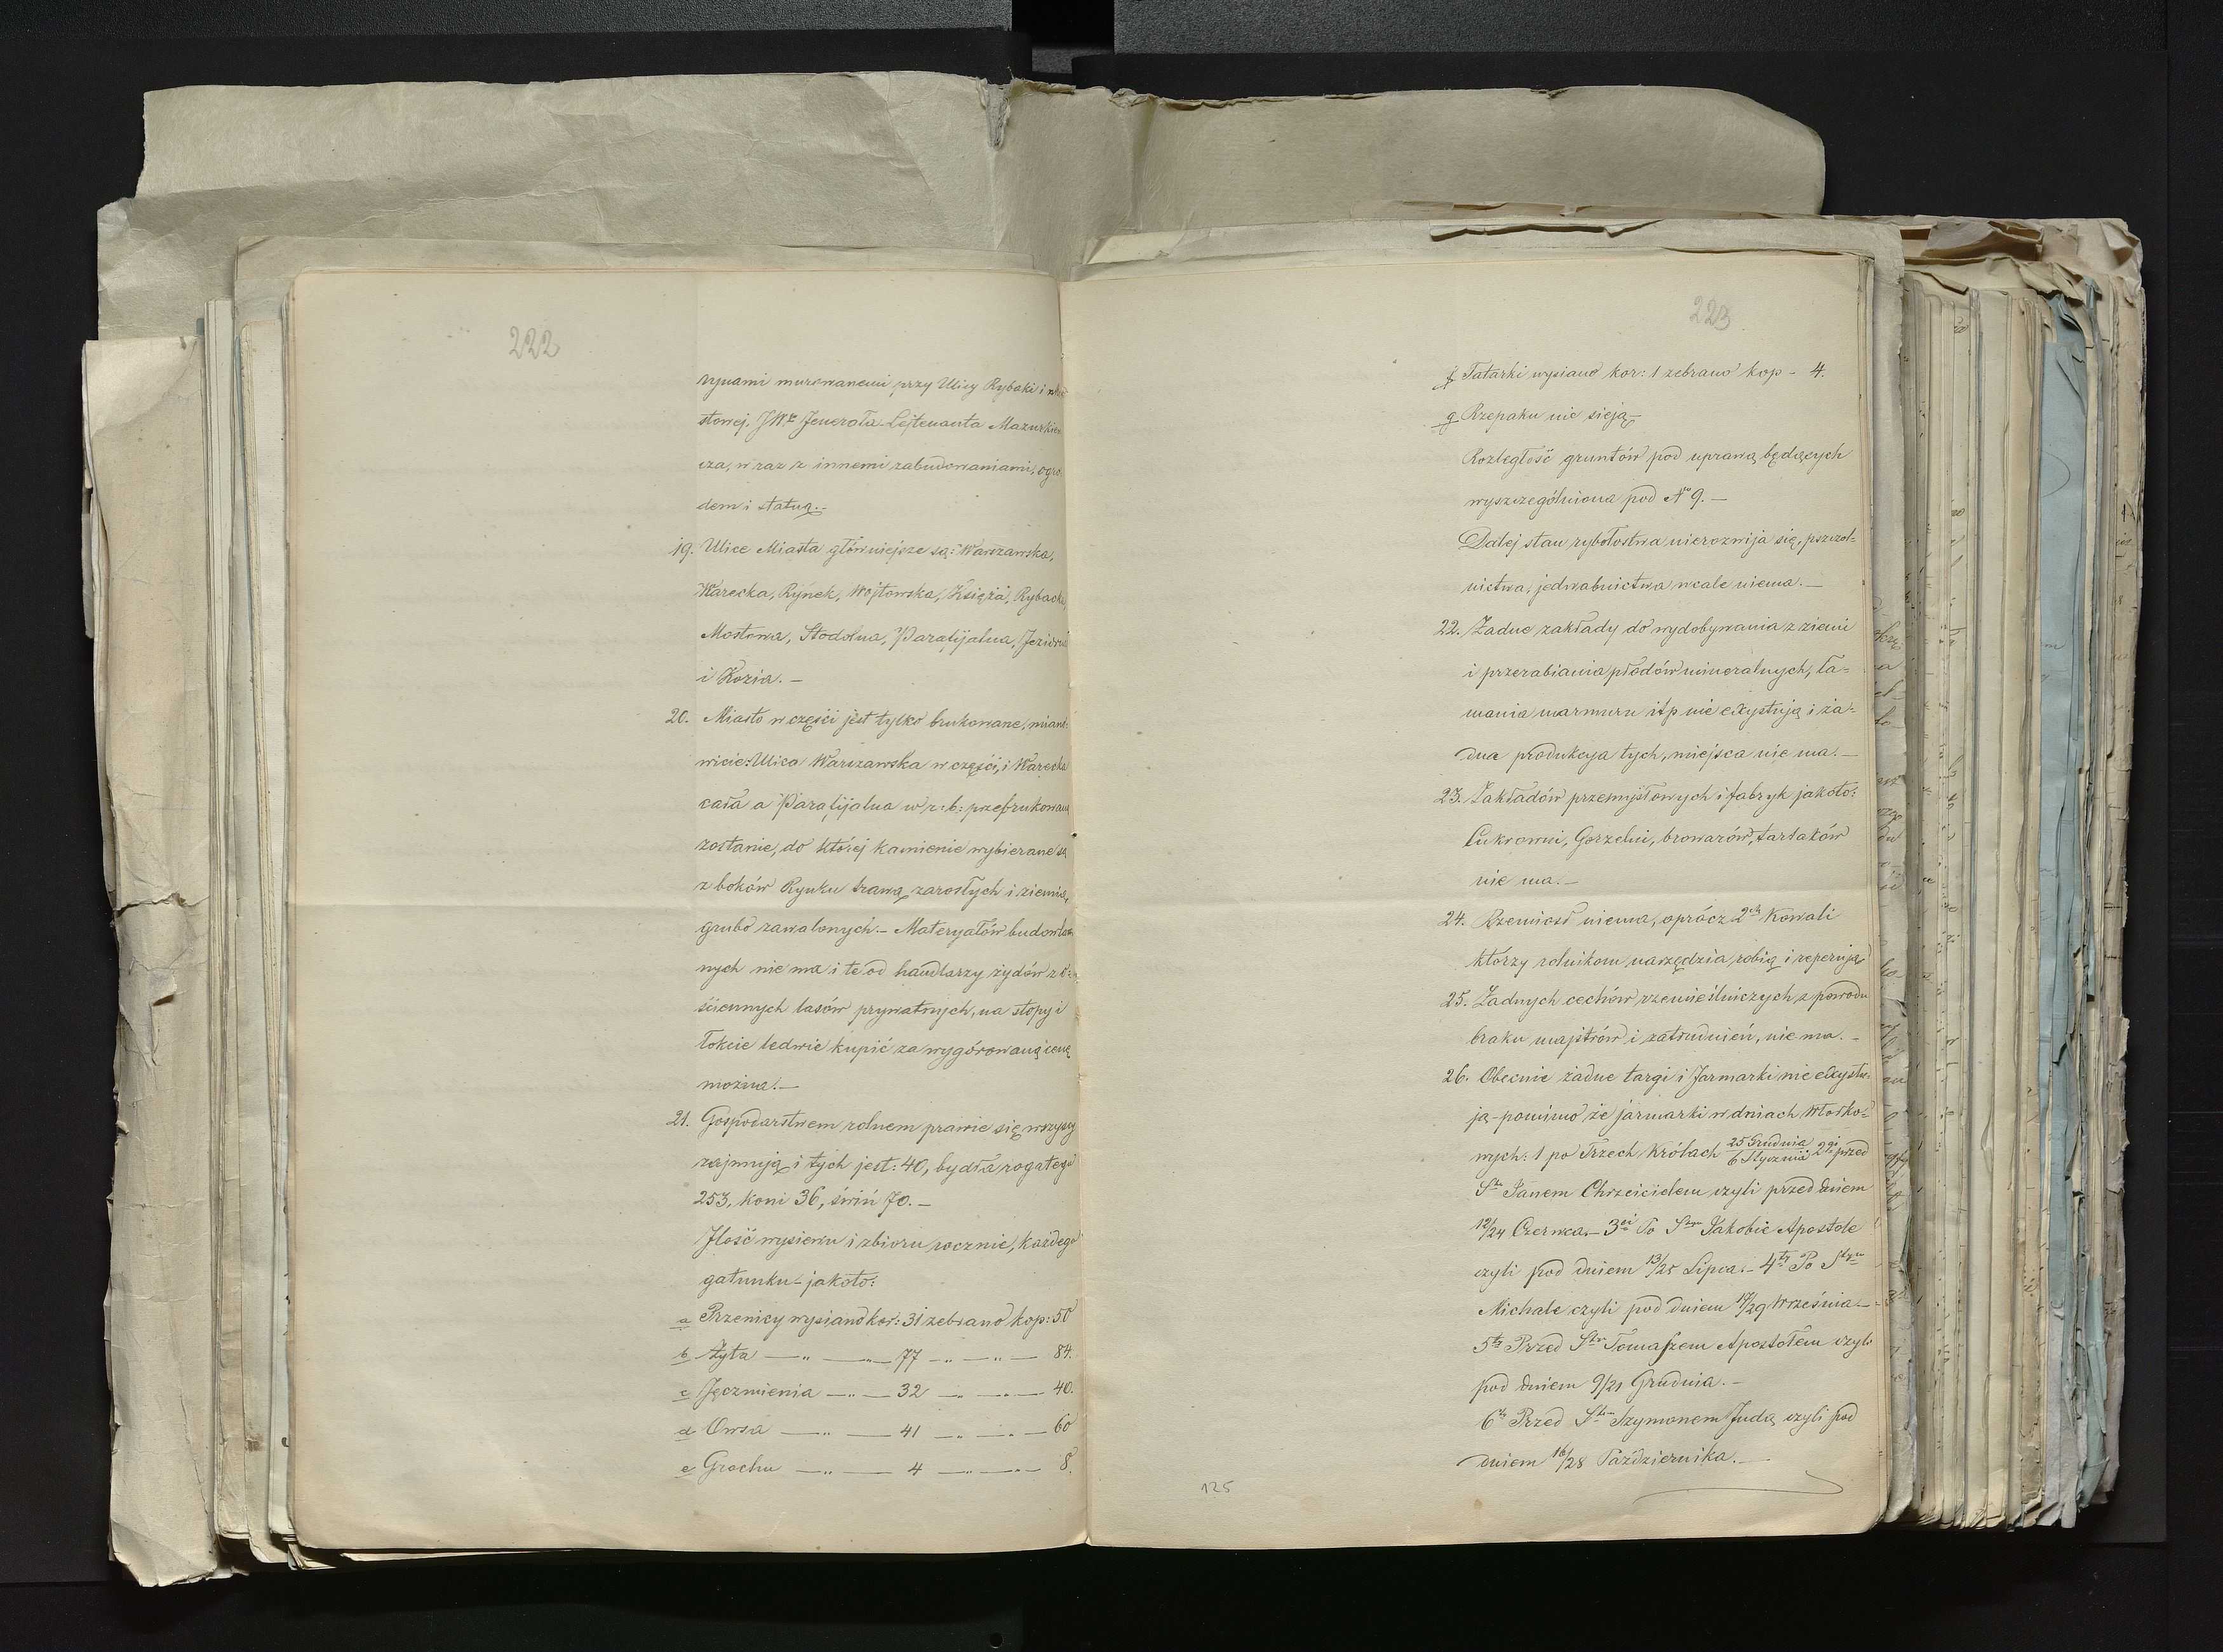 222
rynami murowanemi przy Ulicy Rybaki i
stowej. JWo Jenerała-Lejtenanta Mazurkie
cza, wraz z innemi zabudowaniami, ogro
dem i statuą.-
19. Ulice Miasta główniejsze są: Warszawska,
Warecka, Rynek, Wójtowska, Księża, Rybacka,
Mostowa, Stodolna, Parafijalna,
i Kozia. -
20. Miasto w części jest tylko brukowane, miano
wicie: Ulica Warszawska w części, i Warecka
cała a Parafijalna w r: b: przebrukowaną
zostanie, do której kamienie wybierane są
z boków Rynku trawą zarosłych i ziemią,
grubo zawalonych.- Materyałów budowla
nych nie ma i te od handlarzy żydów z o=
ściennych lasów prywatnych, na stopy i
łokcie ledwie kupić za wygórowaną cenę
można.-
21. Gospodarstwem rolnem prawie się wszyscy
zajmują i tych jest: 40, bydła rogatego
253, koni 36, świń 70.-
Ilość wysiewu i zbioru rocznie, każdego
gatunku - jakoto:
a Przenicy wysiano kor: 31 zebrano kop: 50
b Żyta — „ — „ — 77 — „ — „ — 84.
c Jęczmienia — „ — 32 — „ — „ — 40.
d Owsa — „ — 41 — „ — „ — 60
e Grochu — „ — 4 — „ — „ — 8.
223
f Tatarki wysiano kor: 1 zebrano kop - 4.
g Rzepaku nie sieją -
Rozległość gruntów pod uprawą będących
wyszczególniona pod No 9.-
Dalej stan rybołostwa nierozwija się, pszczol=
nictwa, jedwabnictwa wcale niema.-
22. Żadne zakłady do wydobywania z ziemi
i przerabiania płodów mineralnych, ła=
mania marmuru itp nie exystują i ża=
dna produkcya tych, miejsca nie ma.-
23. Zakładów przemysłowych i fabryk jakoto:
Cukrowni, Gorzelni, browarów, tartaków
nie ma.-
24. Rzemiosł niema, oprócz 2ch Kowali
którzy rolnikom narzędzia robią i reperują
25. Żadnych cechów rzemieślniczych z powodu
braku majstrów i zatrudnień, nie ma.-
26. Obecnie żadne targi i Jarmarki nie exystu=
ją - pomimo że jarmarki w dniach Wtorko=
wych: 1 po Trzech Królach 25 Grudnia/6 Stycznia 2gi przed
Sty Janem Chrzcicielem czyli przed dniem
12/24 Czerwca.- 3ci Po Stym Jakobie Apostole
czyli pod dniem 13/25 Lipca.- 4ty Po Stym
Michale czyli pod dniem 17/29 Września.-
5ty Przed Stym Tomaszem Apostołem czyli
pod dniem 9/21 Grudnia.-
6ty Przed Stym Szymonem Judą czyli pod
dniem 16/28 Października.-
125